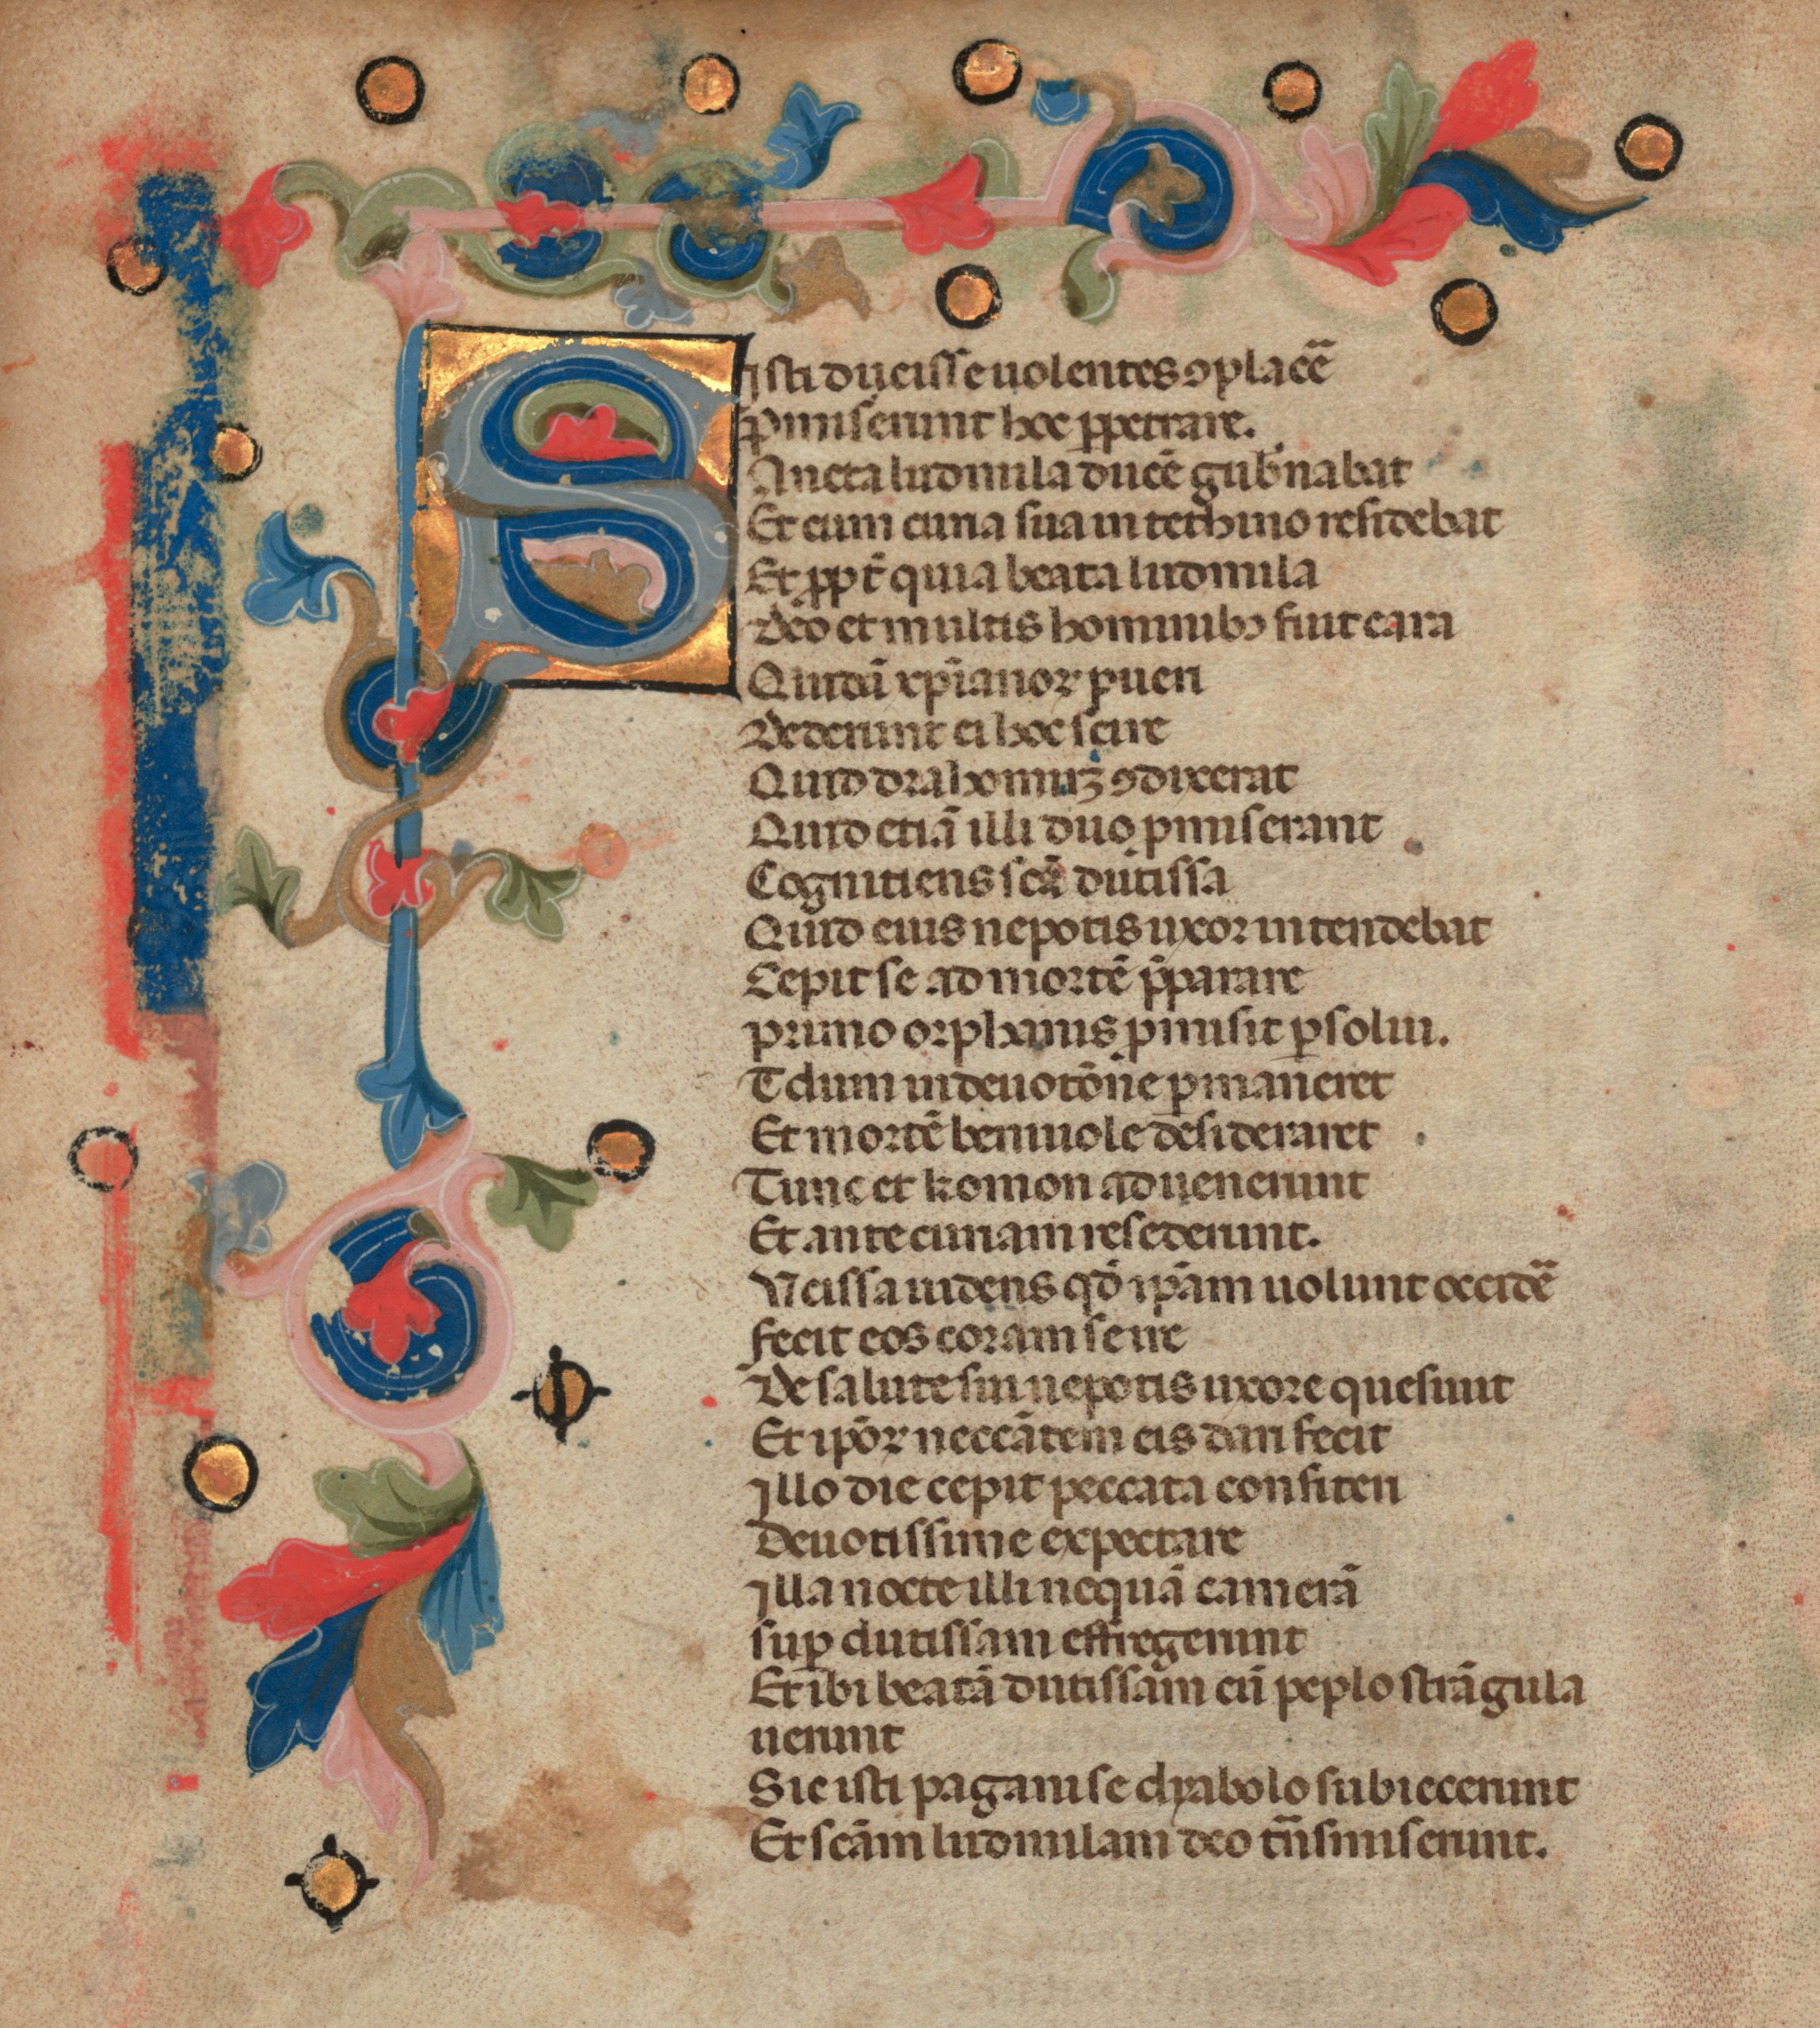 Isti ducisse uolentes ꝯplacẽ
Pmiserunt hoc ꝓpetrare.
Ancta ludmila ducẽ gub̃nabat
Et cum cuna sua in tethino residebat
Et ꝓpt̃ quia beata ludmila
Deo et multis hominibꝰ fuit cara
Quidã xp̃ianoꝝ pueri
Dederunt ei hoc scire
Quid drahomiꝛꝫ ꝯdixerat
Quid etiã illi duo pmiserant
Cognitiens scã ducissa
Quid eius nepotis uxor intendebat
Cepit se ad mortẽ p̃parare
primo orphanis pmisit ꝑsolui.
T dum in deuotõne ꝑmaneret
Et mortẽ beniuole desideraret
Tunc et komon aduenerunt
Et ante curiam resederunt.
Vcissa uidens qd̃ ip̃am uolunt occidẽ
fecit eos coram se ire
De salute sui nepotis uxore quesiuit
Et ip̃oꝝ neccãtem eis dari fecit
Illo die cepit peccata confiteri
Deuotissime expectare
Illa nocte illi nequã camerã
suꝑ ducissam effregerunt
Et ibi beatã ducissam cũ peplo strãgula
uerunt
Sic isti pagani se dyabolo subiecerunt
Et scãm ludmilam deo tñsmiserunt.